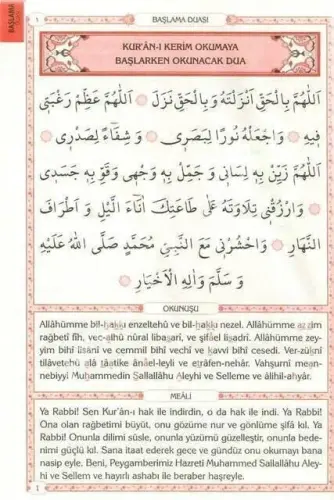 BAŞLAMA
1
BAŞLAMA DUASI
KUR'ÂN-I KERİM OKUMAYA
BAŞLARKEN OKUNACAK DUA
اَللّٰهُمَّ بِالْحَقِّ اَنْزَلْتَهُ وَ بِالْحَقِّ نَزَلَ اَللّٰهُمَّ عَظِّمْ رَغْبَتِى
فِيهِ وَاجْعَلْهُ نُورًا لِبَصَرِى وَ شِفَاءً لِصَدْرِى
اَللّٰهُمَّ زَيِّنْ بِهِ لِسَانِى وَ جَمِّلْ بِهِ وَجْهِى وَقَوِّ بِهِ جَسَدِى
وَارْزُقْنِى تِلَاوَتَهُ عَلٰى طَاعَتِكَ اٰنَاءَ الَّيْلِ وَ اَطْرَافَ
النَّهَارِ وَاحْشُرْنِى مَعَ النَّبِىِّ مُحَمَّدٍ صَلَّى اللهُ عَلَيْهِ
وَ سَلَّمَ وَاٰلِهِ الْاَخْيَارِ
OKUNUŞU
Allâhümme bil-hakkı enzeltehû ve bil-hakkı nezel. Allâhümme azzim
rağbetî fîh, vec-alhü nûral libasarî, ve şifâel lisadrî. Allâhümme zey-
yin bihî lisânî ve cemmil bihî vechî ve kavvi bihî cesedî. Ver-zuknî
tilâvetehû alâ tâatike ânâel-leyli ve etrâfen-nehâr. Vahşurnî mean-
nebiyyi Muhammedin Sallallâhu Aleyhi ve Selleme ve âlihil-ahyâr.
MEÂLİ
Ya Rabbi! Sen Kur'ân-ı hak ile indirdin, o da hak ile indi. Ya Rabbi!
Ona olan rağbetimi büyüt, onu gözüme nur ve gönlüme şifâ kıl. Ya
Rabbi! Onunla dilimi süsle, onunla yüzümü güzelleştir, onunla bede-
nimi güçlü kıl. Sana itaat ederek gece ve gündüz onu okumayı bana
nasip eyle. Beni, Peygamberimiz Hazreti Muhammed Sallallâhu Aley-
hi ve Sellem ve hayırlı ashabı ile beraber haşreyle.
1